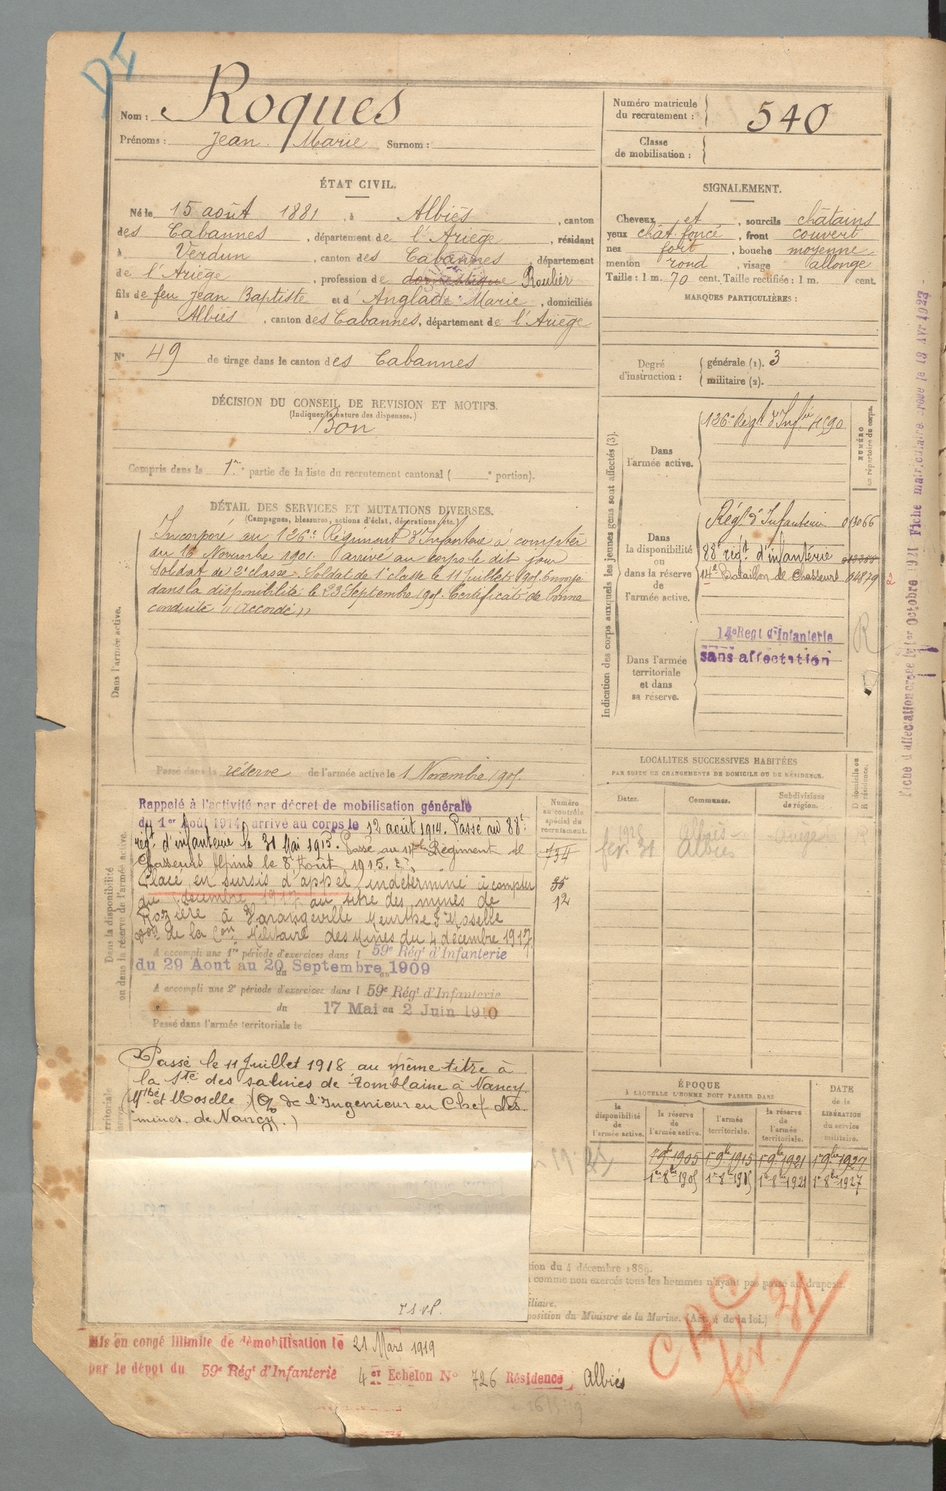 Nom : Roques
Prénoms : Jean Marie Surnom :
Numéro matricule
du recrutement : 540
Classe
de mobilisation :
ÉTAT CIVIL.
Né le 15 août 1881, à Albiès, canton
des Cabannes, département de l'Ariège, résidant
à Verdun, canton des Cabannes, département
de l'Ariège, profession de domestique Roulier
fils de feu Jean Baptiste et d'Anglade Marie, domiciliés
à Albiès, canton des Cabannes, département de l'Ariège
N° 49 de tirage dans le canton des Cabannes
SIGNALEMENT.
Cheveux et, sourcils châtains
yeux chat. foncé, front couvert
nez fort, bouche moyenne
menton rond, visage allongé
Taille : 1 m. 70 cent. Taille rectifiée : 1 m. cent.
MARQUES PARTICULIÈRES :
Degré
d'instruction :
générale (1). 3
militaire (2).
DÉCISION DU CONSEIL DE REVISION ET MOTIFS.
(Indiquer la nature des dispenses.)
Bon
Compris dans la 1re partie de la liste du recrutement cantonal ( e portion).
DÉTAIL DES SERVICES ET MUTATIONS DIVERSES.
(Campagnes, blessures, actions d'éclat, décorations, etc.)
Dans l'armée active.
Incorporé au 126e Régiment d'Infanterie à compter
du 16 Novembre 1901. arrivé au corps le dit jour
Soldat de 2e classe. Soldat de 1e classe le 11 juillet 1905. Envoyé
dans la disponibilité le 23 Septembre 1905. Certificat de bonne
conduite "Accordé"
Passé dans la réserve de l'armée active le 1 Novembre 1905
Indication des corps auxquels les jeunes gens sont affectés (3).
NUMÉRO
au répertoire du corps.
Dans
l'armée active.
126e Régt d'Infie
Dans
la disponibilité
ou
dans la réserve
de
l'armée active.
Régt d'Infanterie
88e régt d'infanterie
14e Bataillon de Chasseurs
Dans l'armée
territoriale
et dans
sa réserve.
14e Regt d'Infanterie
sans affectation
R
Dans la disponibilité
ou dans la réserve de l'armée active.
Rappelé à l'activité par décret de mobilisation générale
du 1er Août 1914, arrivé au corps le 12 août 1914. Passé au 88e
régt d'infanterie le 31 Mai 1915. Passé au Régiment de
Chasseurs Alpins le 8 Août 1915.
Placé en sursis d'appel indéterminé à compter
du décembre 1917 au titre des mines de
Rozière à Varangéville Meurthe & Moselle
de la Con Militaire des Mines du 4 décembre 1917
A accompli une 1re période d'exercices dans l 59e Régt d'Infanterie
du 29 Aout au 20 Septembre 1909
A accompli une 2e période d'exercices dans l 59e Régt d'Infanterie
du 17 Mai au 2 Juin 1910
Passé dans l'armée territoriale le
Numéro
au contrôle
spécial du
recrutement.
734
12
LOCALITÉS SUCCESSIVES HABITÉES
PAR SUITE DE CHANGEMENTS DE DOMICILE OU DE RÉSIDENCE.
Dates. Communes. Subdivisions
de région. D domicile ou
R résidence.
1928 Albiès Ariège
fév. 31 Albiès
Passé le 11 Juillet 1918 au même titre à
la Sté des salines de Tomblaine à Nancy
(Mthe et Moselle) (O. de l'Ingénieur en Chef des
mines de Nancy.)
ÉPOQUE
À LAQUELLE L'HOMME DOIT PASSER DANS
la
disponibilité
de
l'armée active.
la réserve
de
l'armée active.
l'armée
territoriale.
la réserve
de
l'armée
territoriale.
DATE
de la
LIBÉRATION
du service
militaire.
1r 9bre 1905 1r 9bre 1915 1r 9bre 1921 1r 9bre 1927
1r 8bre 1905 1r 8bre 1915 1r 8bre 1921 1r 8bre 1927
tion du 4 décembre 1889.
comme non exercés tous les hommes n'ayant pas passé au drapeau.
iliaire.
position du Ministre de la Marine. (Art. 4 de la loi.)
T.S.V.P.
Mis en congé illimité de démobilisation le 21 Mars 1919
par le dépôt du 59e Régt d'Infanterie 4e Echelon N° 726 Résidence Albiès
CDC
fév 31
Fiche d'affectation créée le 1er Octobre 1921 Fiche matriculaire créée le 18 Avr 1923